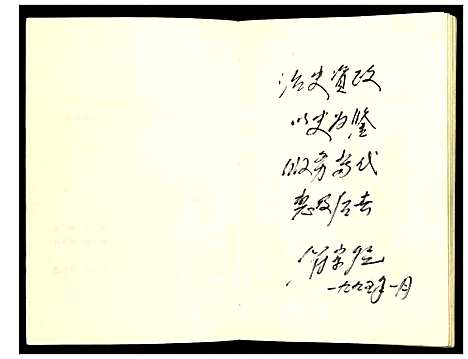 治史资政
以史为鉴
服务当代
惠及后者
一九九五年一月